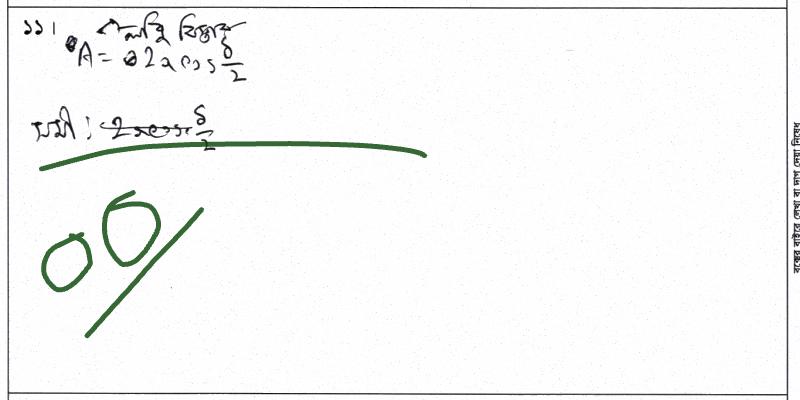 ১১। লব্ধি বিস্তার
A = 2a cos δ/2
δ/2
00
বক্সের বাইরে লেখা বা দাগ দেয়া নিষেধ